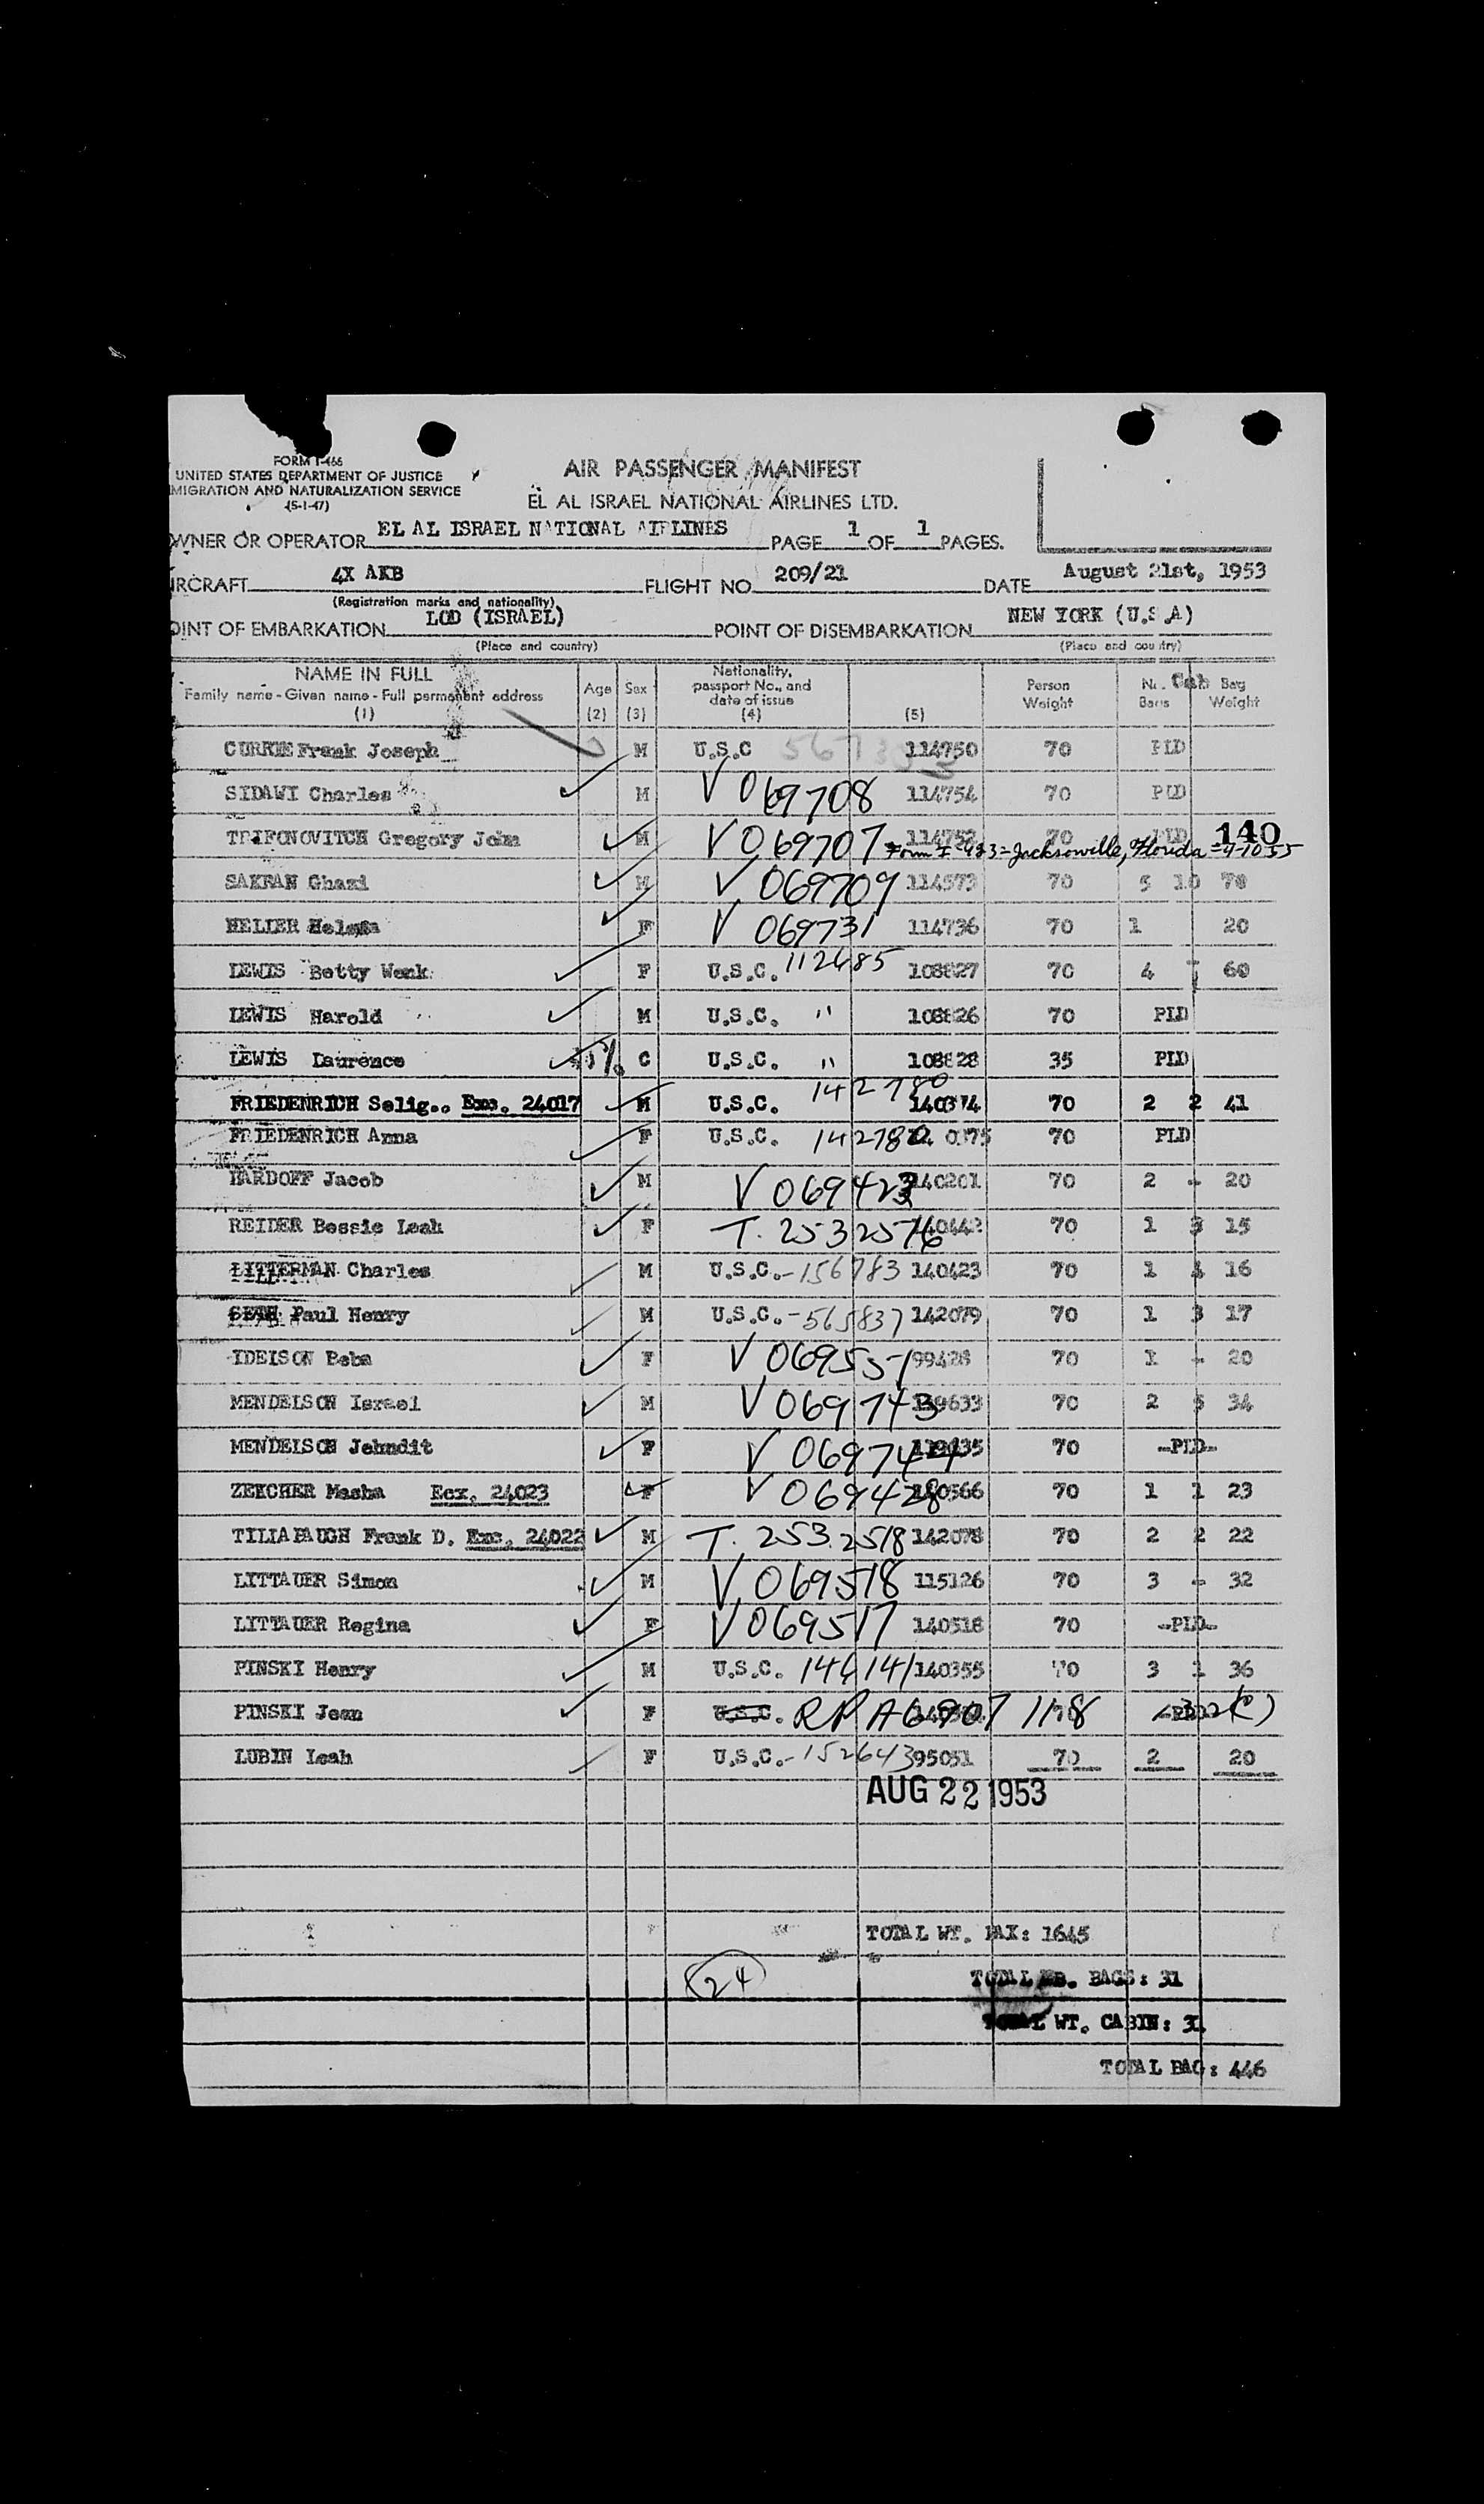 FORM I-466
UNITED STATES DEPARTMENT OF JUSTICE
MIGRATION AND NATURALIZATION SERVICE
(5-1-47)
AIR PASSENGER MANIFEST
EL AL ISRAEL NATIONAL AIRLINES LTD.
WNER OR OPERATOR EL AL ISRAEL NATIONAL AIRLINES PAGE 1 OF 1 PAGES.
IRCRAFT 4X AKB FLIGHT NO 209/21 DATE August 21st, 1953
(Registration marks and nationality)
OINT OF EMBARKATION LOD (ISRAEL) POINT OF DISEMBARKATION NEW YORK (U.S.A)
(Place and country) (Place and country)
NAME IN FULL Family name - Given name - Full permanent address (1) Age (2) Sex (3) Nationality, passport No., and date of issue (4) (5) Person Weight Nr. Bags Cab Bag Weight
CURRIE Frank Joseph M U.S.C 114750 70 PLD
SIDAWI Charles M V 069708 114754 70 PLD
TRIFONOVITCH Gregory John M V 069707 114752 70 PLD 140
Form I-423=Jacksonville, Florida =4-10-55
SAKRAN Ghazi M V 069709 114573 70 5 10 78
HELLER F V 069731 114736 70 1 20
LEWIS Betty Wenk F U.S.C. 112485 108827 70 4 60
LEWIS Harold M U.S.C. " 108826 70 PLD
LEWIS Laurence C U.S.C. " 108828 35 PLD
FRIEDENRICH Selig.. Exc. 24017 M U.S.C. 142780 140374 70 2 2 41
FRIEDENRICH Anna F U.S.C. 142780 140375 70 PLD
HARDOFF Jacob M V 069423 140201 70 2 - 20
REIDER Bessie Leah F T. 2532576 140442 70 1 3 15
LITTERMAN Charles M U.S.C.-156783 140423 70 1 4 16
SETH Paul Henry M U.S.C.-565837 142079 70 1 3 17
IDELSON Beba F V 069551 99428 70 1 - 20
MENDELSON Israel M V 069743 119633 70 2 5 34
MENDELSON Jehudit F V 069744 119635 70 -PLD-
ZEKCHER Masha Ecx. 24023 F V 069428 140566 70 1 1 23
TILLAPAUGH Frank D. Exc. 24022 M T. 253.2518 142078 70 2 2 22
LITTAUER Simon M V 069518 115126 70 3 - 32
LITTAUER Regina F V 069517 140518 70 -PLD-
PINSKI Henry M U.S.C. 146141 140355 70 3 1 36
PINSKI Jean F U.S.C. RP A6907 118
LUBIN Leah F U.S.C.-152643 95051 70 2 20
AUG 22 1953
TOTAL WT. PAX: 1645
24 TOTAL NB. BAGS: 31
TOTAL WT. CABIN: 31
TOTAL BAG: 446